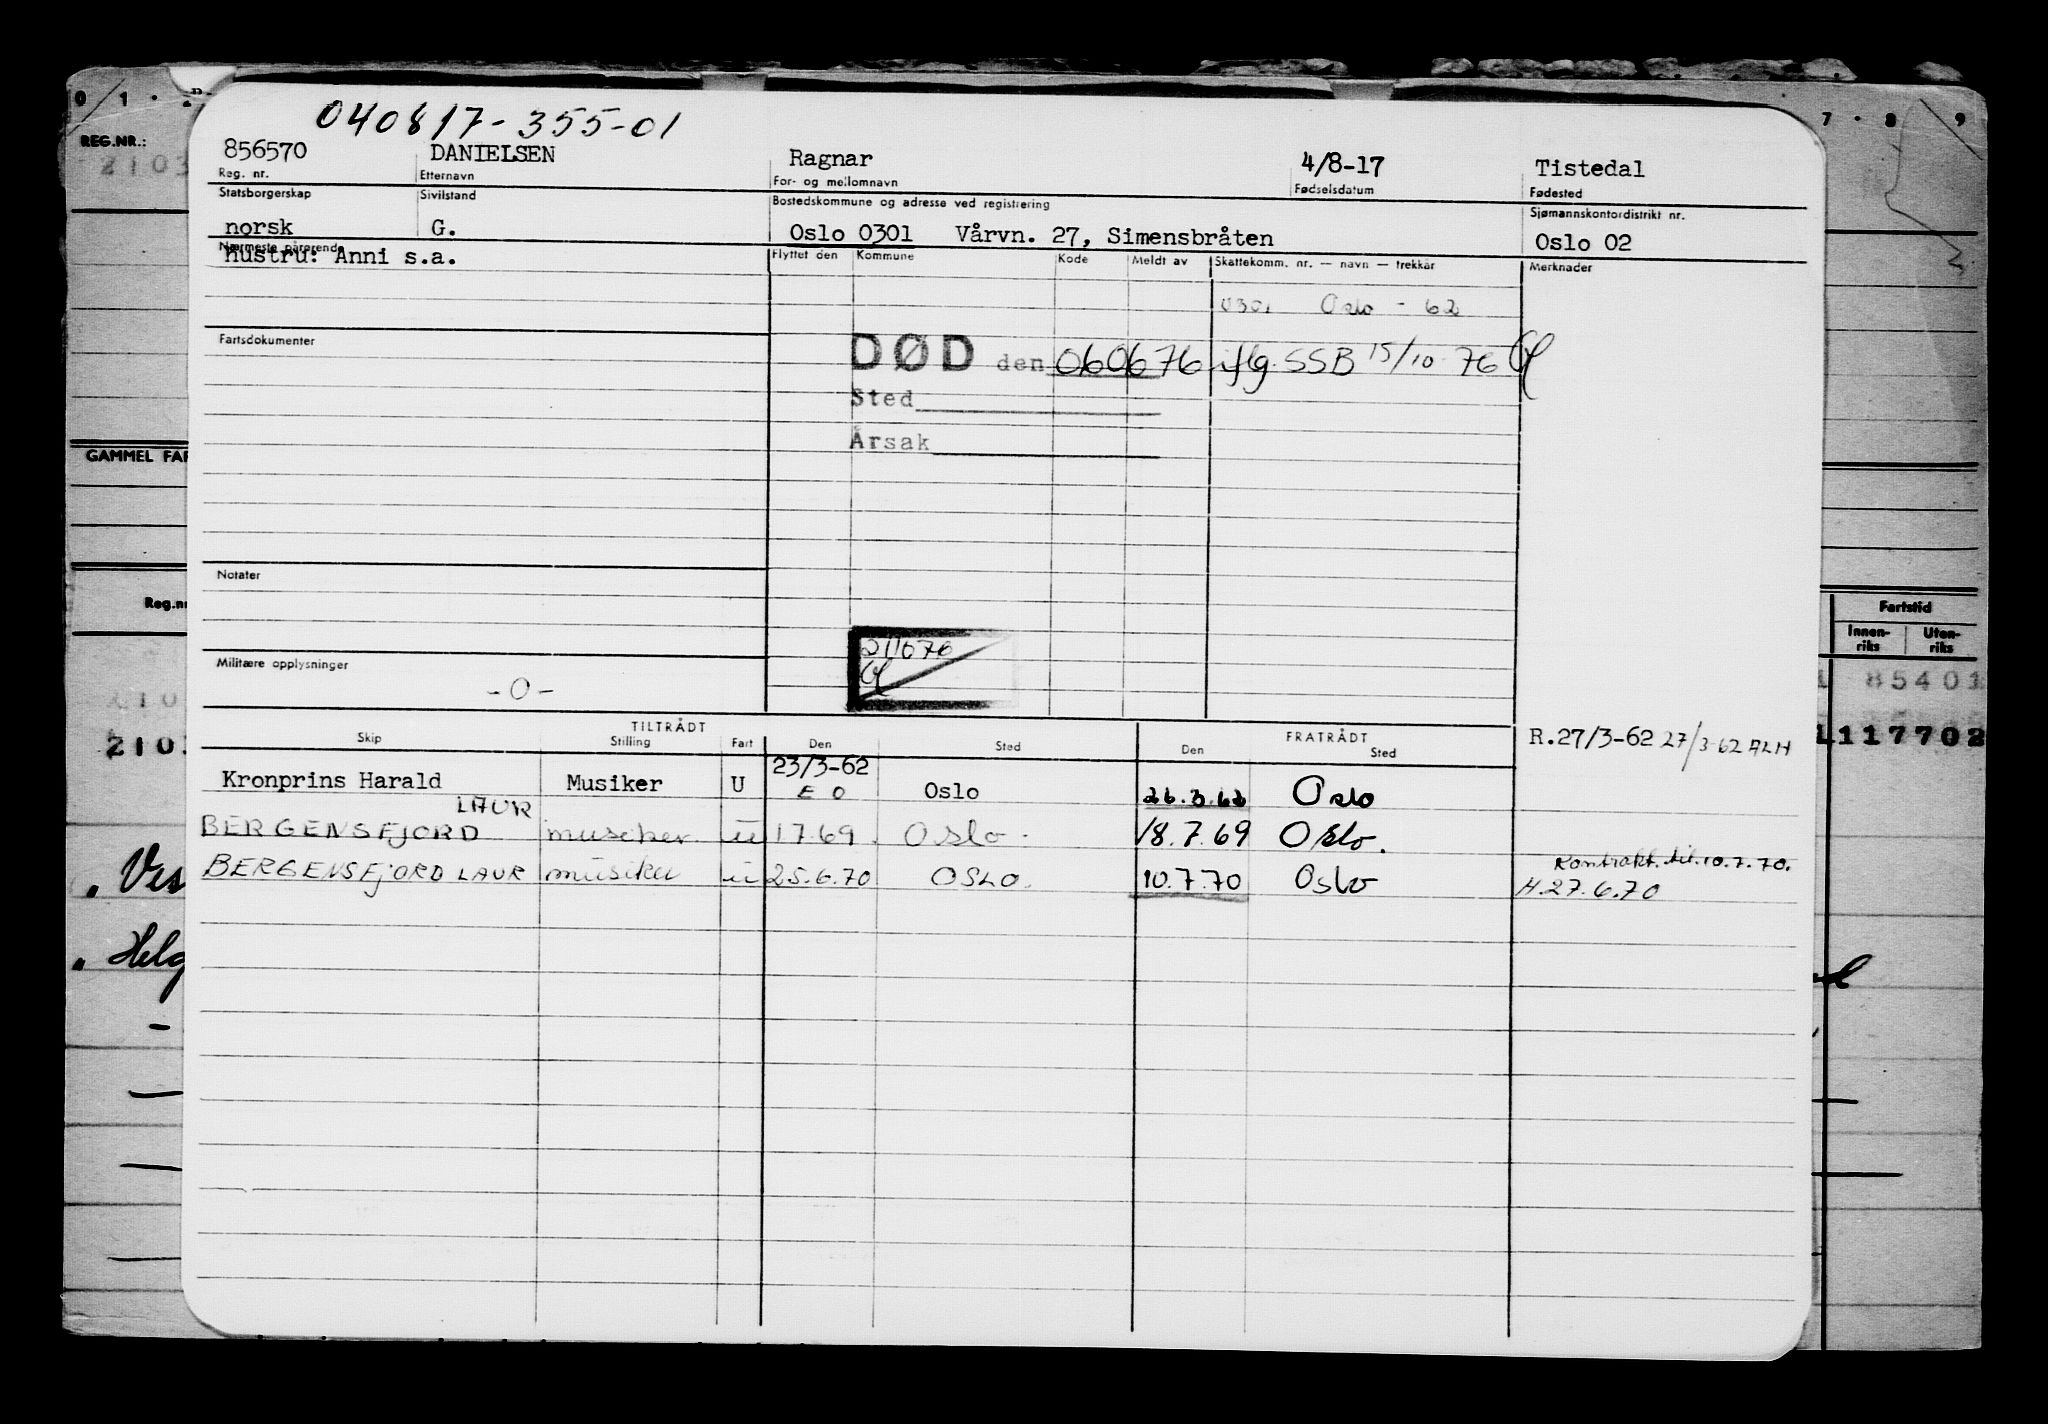 040817-355-01
0 1 7 8 9
REG.NR.: 2103
856570 DANIELSEN Ragnar 4/8-17 Tistedal
Reg. nr. Etternavn For- og mellomnavn Fødselsdatum Fødested
Statsborgerskap Sivilstand Bostedskommune og adresse ved registrering Sjømannskontordistrikt nr.
norsk G. Oslo 0301 Vårvn. 27, Simensbråten Oslo 02
Nærmeste pårørende Flyttet den Kommune Kode Meldt av Skattekomm. nr. — navn — trekkår Merknader
hustru: Anni s.a.
0301 Oslo - 62
Fartsdokumenter
DØD den 060676 iflg. SSB 15/10 76
Sted
Årsak
GAMMEL FAR
Notater
Reg.nr
Fartstid
Innen-riks Uten-riks
211076
Militære opplysninger
-0-
85401
210
2103
117702
TILTRÅDT FRATRÅDT
Skip Stilling Fart Den Sted Den Sted
R.27/3-62 27/3-62 ALH
23/3-62
Kronprins Harald Musiker U E O Oslo 26.3.62 Oslo
LAUR
BERGENSFJORD musiker u 1.7.69. Oslo. 18.7.69 Oslo.
Kontrakt. til. 10.7.70.
BERGENSFJORD LAUR musiker u 25.6.70 OSLO. 10.7.70 Oslo H.27.6.70
Ves
Helg